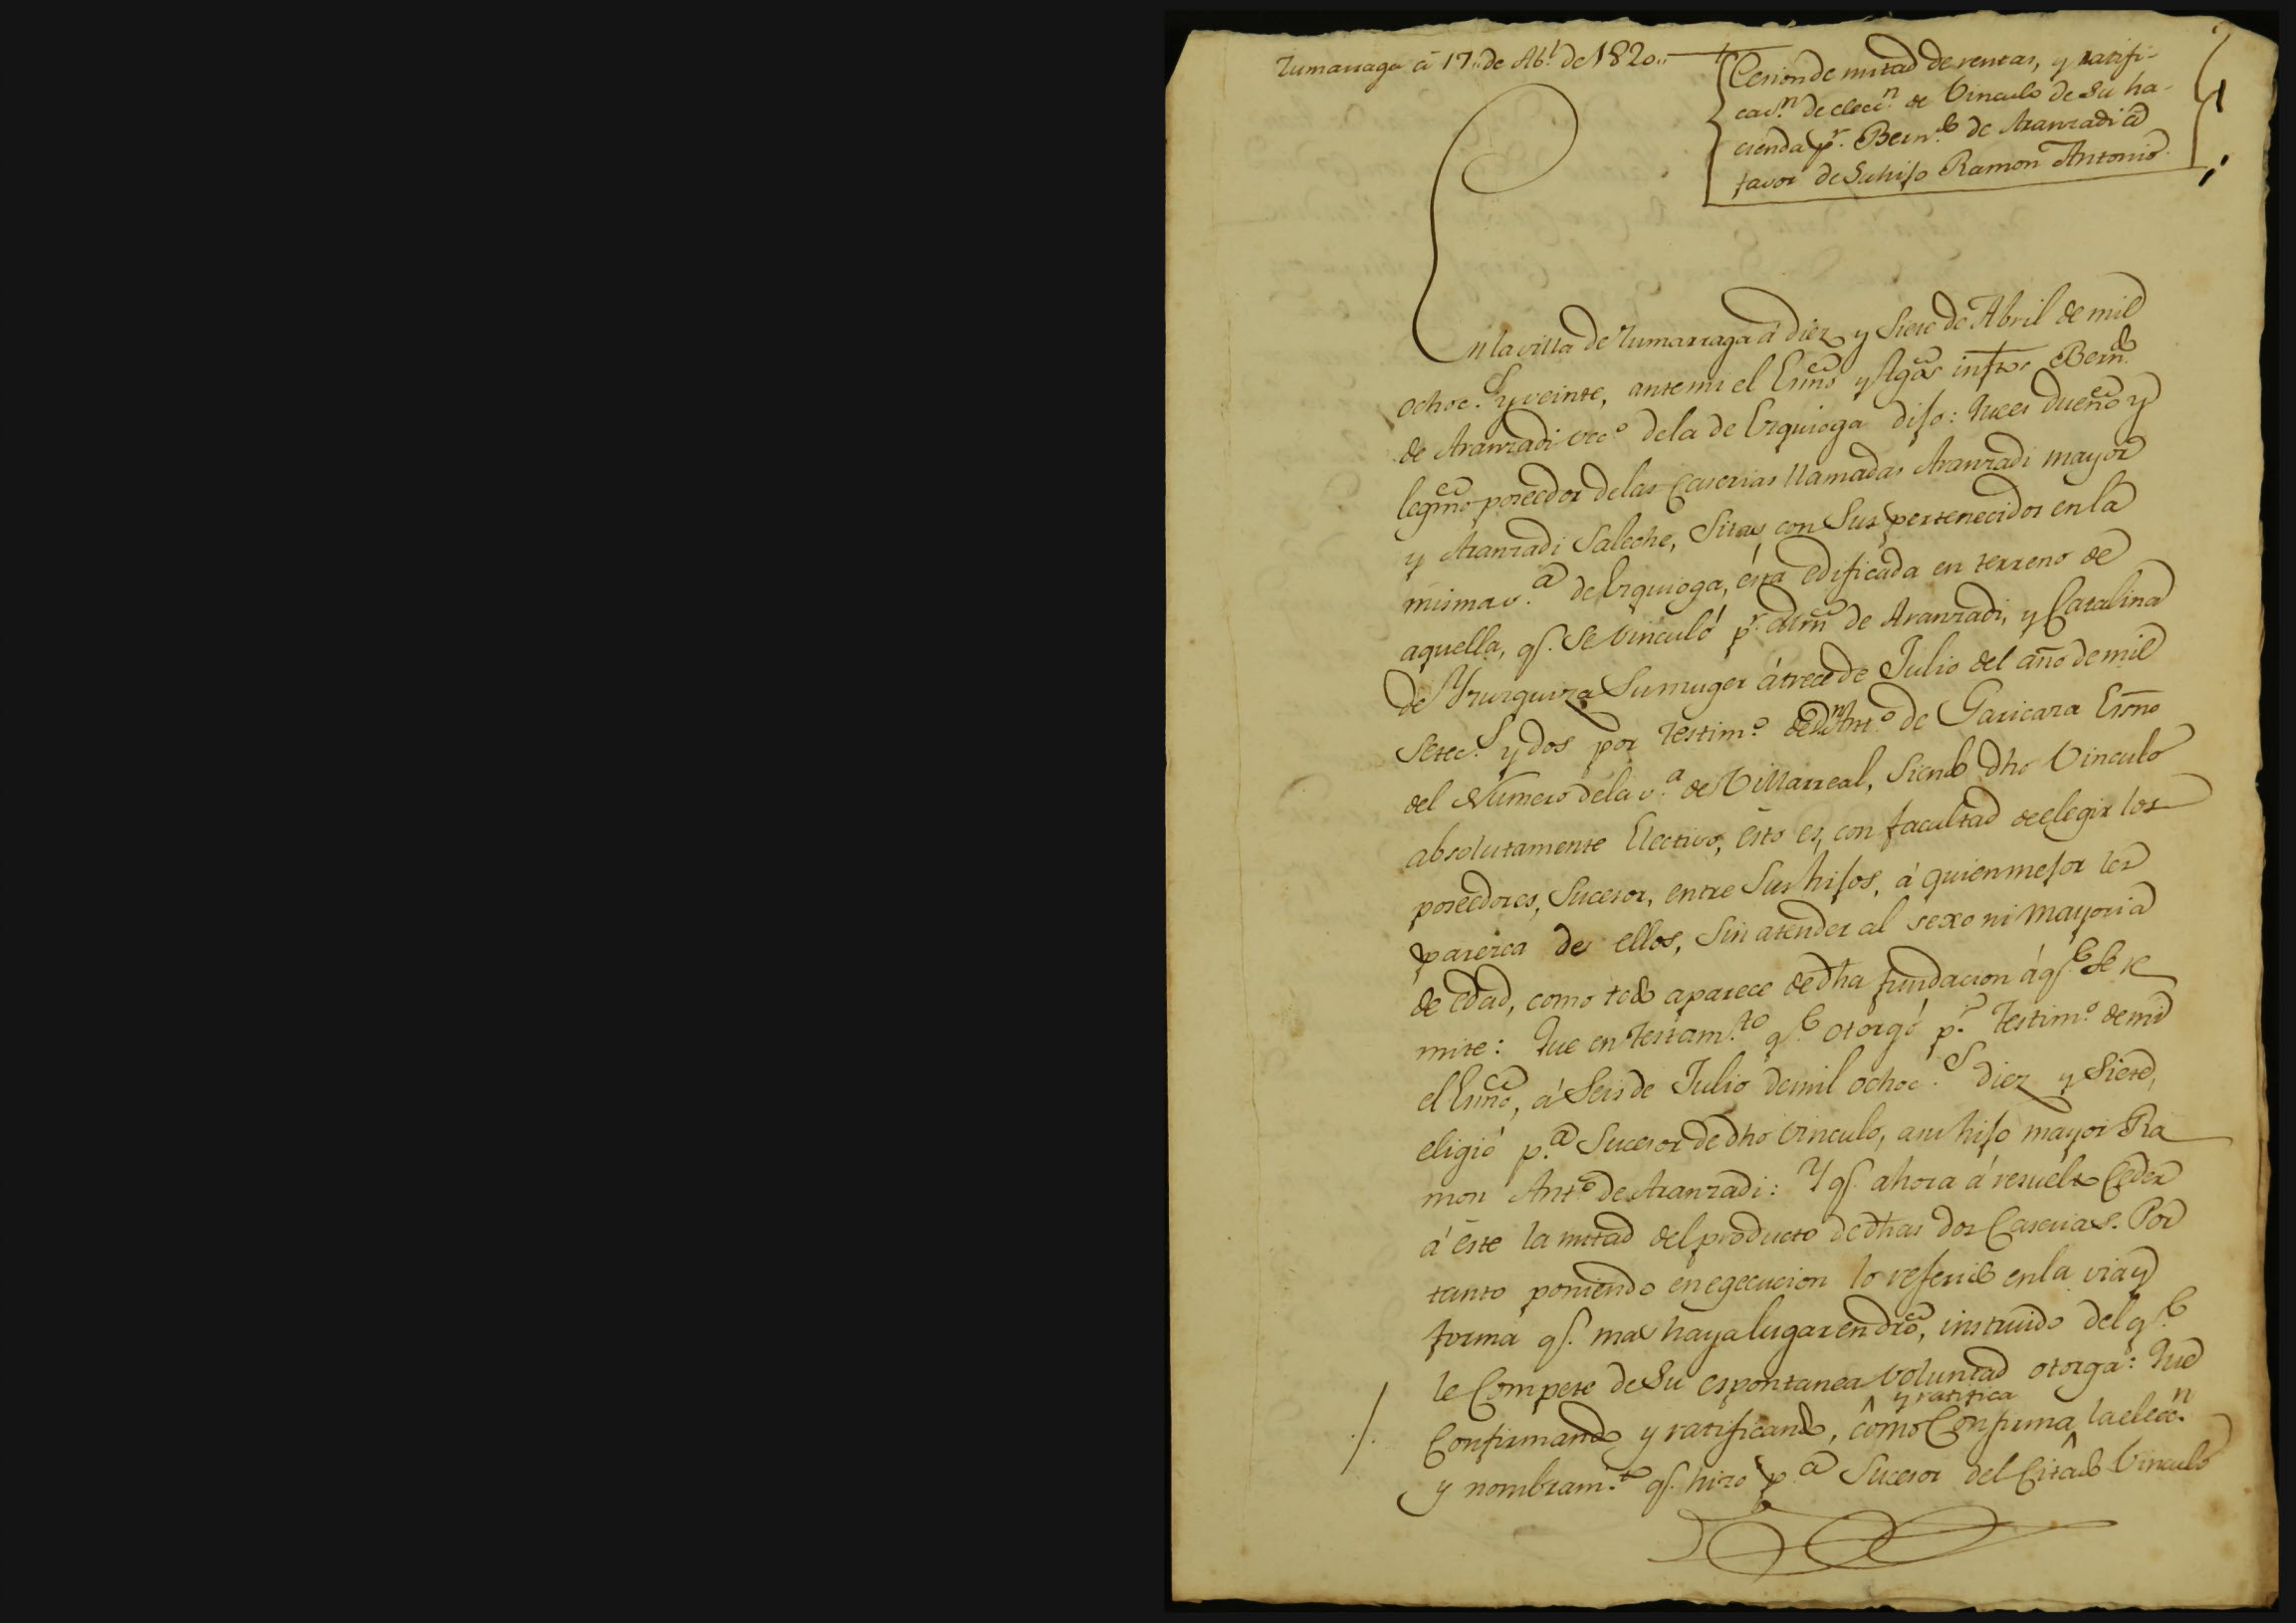 Zumarraga á 17,, de Ab.l de 1820,,
Cesion de mitad de rentas, y ratifi-
cac.n de elecc.n de Vinculo de su ha-
cienda p.r Bern.do de Aranzadi á
favor de su hijo Ramon Antonio.
En la villa de Zumarraga á diez y siete de Abril de mil
ochoc.s y veinte, ante mi el Esno y tgos infros Bern.do
de Aranzadi vec.o de la de Ezquioga dijo: Que es dueño y
legmo poseedor delas Caserias llamadas Aranzadi mayor
y Aranzadi Saleche, sitas con sus pertenecidos en la
misma v.a de Ezquioga, ésta edificada en terreno de
aquella, q.e se vinculó p.r de Aranzadi, y Catalina
de Yzurquiza su muger á trece de Julio del año de mil
setec.s y dos por testim.o de Dn Ant.o de Garicaza Esno
del Numero dela v.a de Villarreal, siendo dho Vinculo
absolutamente Electivo, ésto es, con facultad de elegir los
poseedores, sucesor, entre sus hijos, á quien mejor les
parezca de ellos, sin atender al sexo ni mayoria
de edad, como todo aparece de dha fundacion á q.e se re
mite: Que en testam.to q.e otorgó p.r testim.o de mi
el Esno, á seis de Julio de mil ochoc.s diez y siete,
eligió p.a sucesor de dho vinculo, a su hijo mayor Ra
mon Ant.o de Aranzadi: Y q.e ahora á resuelto Ceder
á éste la mitad del producto de dhas dos Caserias. Por
tanto poniendo en egecucion lo referido en la via y
forma q.e mas haya lugar en dro, instruido del q.e
le Compete de su espontanea voluntad otorga: Que
y ratifica
Confirmando y ratificando, como Confirma la elecc.n
y nombram.to q.e hizo p.a sucesor del Citado Vinculo